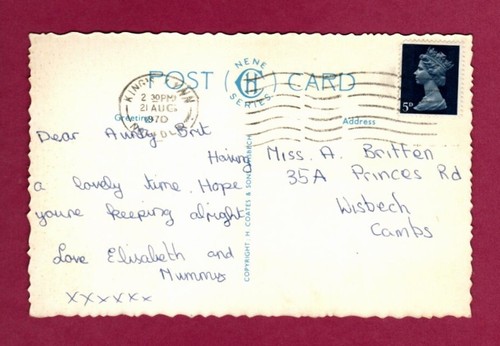 POST CARD
NENE
H
SERIES
KING'S LYNN
2 30PM
21 AUG
1970
NORFOLK
Greetings
Address
5P
Dear Aunty Brit
Having
a lovely time. Hope
you're keeping alright
Love Elisabeth and
Mummy
xxxxxx
Miss. A. Britten
35A Princes Rd
Wisbech
Cambs
COPYRIGHT H. COATES & SON, WISBECH